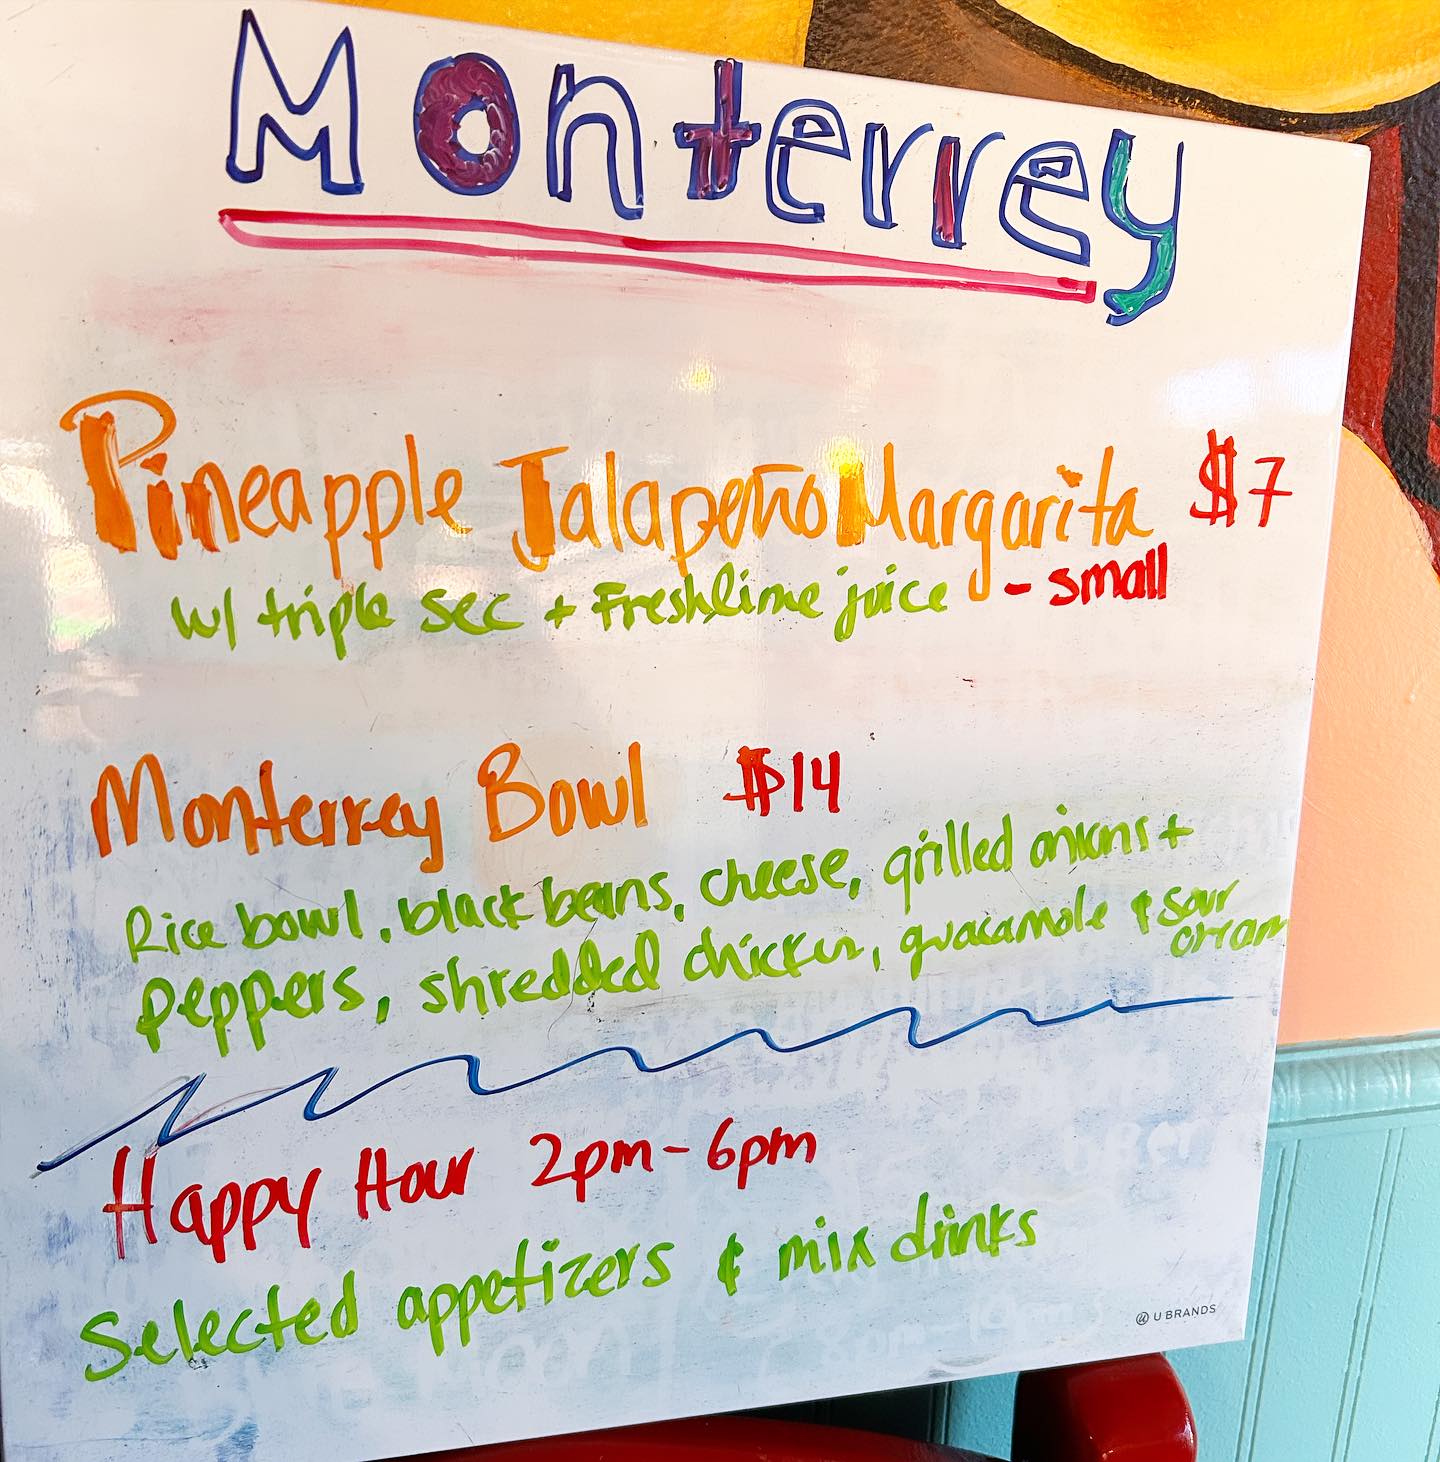 Monterrey
Pineapple Jalapeño Margarita $7
w/ triple sec + Fresh lime juice - small
Monterrey Bowl $14
Rice bowl, black beans, cheese, grilled onions +
peppers, shredded chicken, guacamole & sour
cream
Happy Hour 2pm-6pm
Selected appetizers & mix drinks
U BRANDS